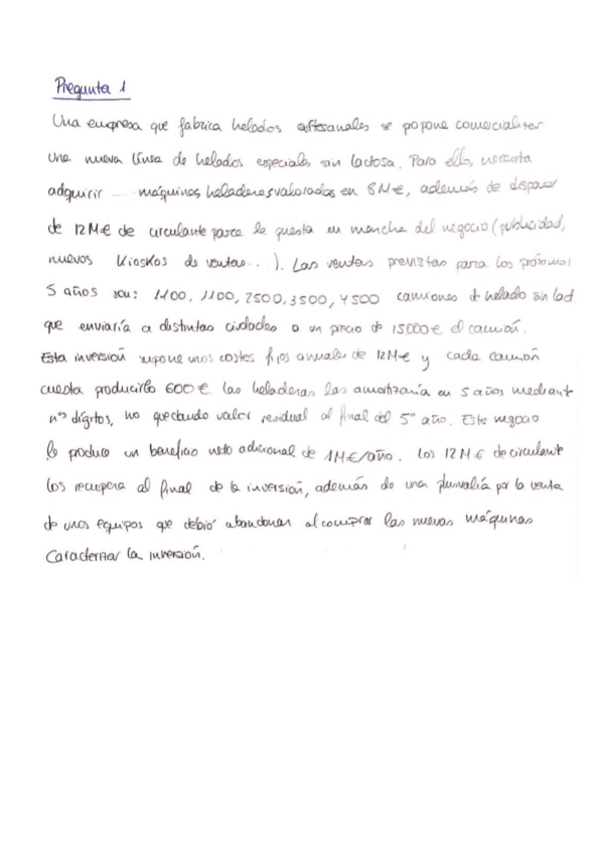 Pregunta 1
Una empresa que fabrica helados artesanales se popone comercializar
una nueva línea de helados especiales sin lactosa. Para ello, necesita
adquirir máquinas heladeras valoradas en 8M€, además de disponer
de 12M€ de circulante para la puesta en marcha del negocio (publicidad,
nuevos kioskos de ventas...). Las ventas previstas para los próximos
5 años son: 1100, 1100, 2500, 3500, 4500 camiones de helado sin lact.
que enviaría a distintas ciudades a un precio de 15000€ el camión.
Esta inversión supone unos costes fijos anuales de 12M€ y cada camión
cuesta producirlo 600€. Las heladeras las amortizaría en 5 años mediante
nos dígitos, no quedando valor residual al final del 5º año. Este negocio
le produce un beneficio neto adicional de 1M€/año. Los 12M€ de circulante
los recupera al final de la inversión, además de una plusvalía por la venta
de unos equipos que debió abandonar al comprar las nuevas máquinas
Caracterizar la inversión.